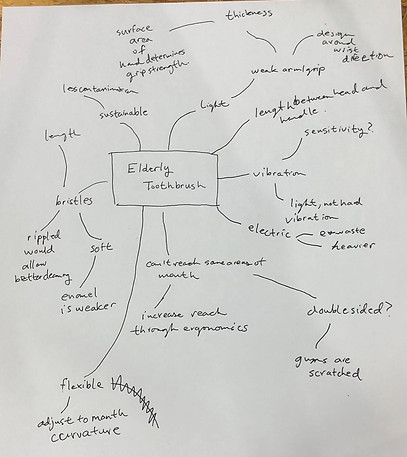 thickness
surface
area
of
hand determines
grip strength
design
around
wrist
direction
weak arm/grip
less contamination
sustainable
Light
length between head and
handle.
length
sensitivity?
Elderly
Toothbrush
vibration
bristles
light, not had
vibration
electric
ewaste
heavier
rippled
would
allow
better cleaning
soft
enamel
is weaker
can't reach some areas of
mouth
increase reach
through ergonomics
double sided?
gums are
scratched
flexible
adjust to mouth
curvature